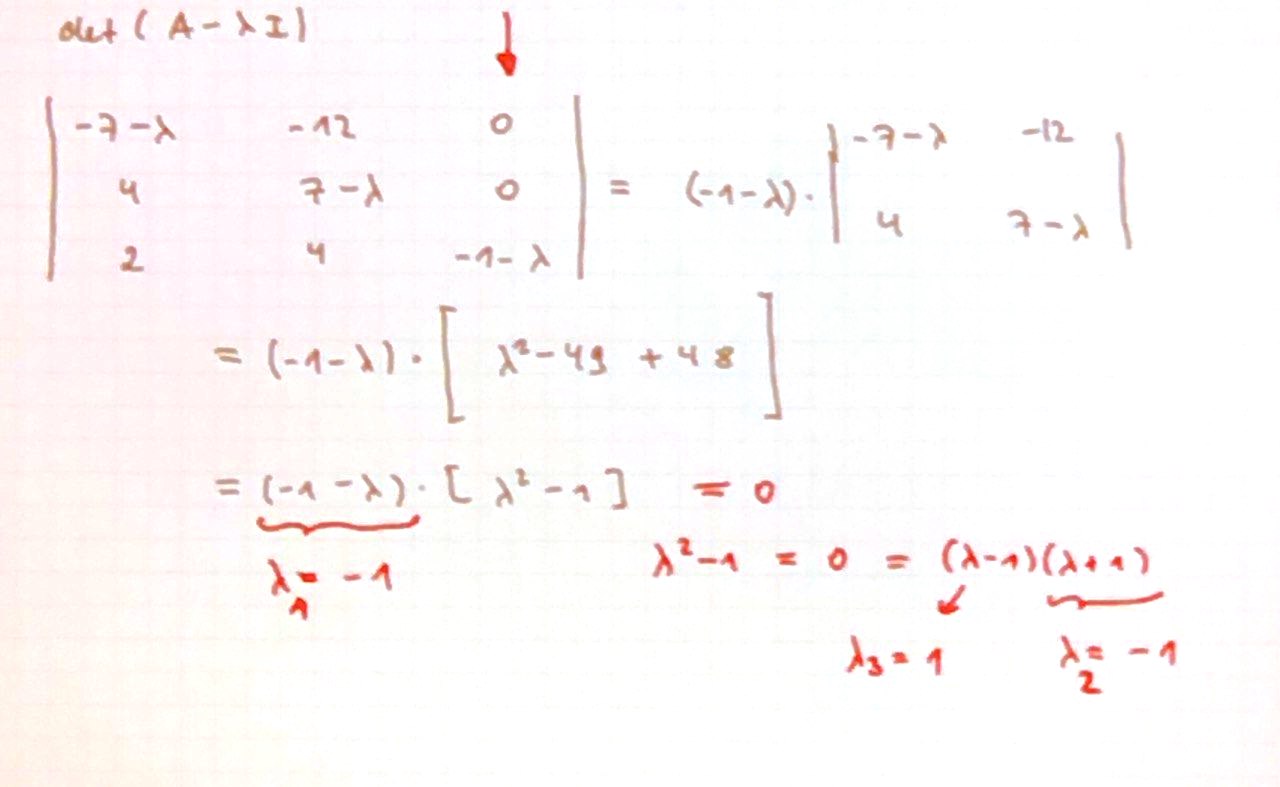 det ( A - λ I )
| -7-λ -12 0 |
| 4 7-λ 0 | = (-1-λ) · | -7-λ -12 |
| 2 4 -1-λ | | 4 7-λ |
= (-1-λ) · [ λ² - 49 + 48 ]
= (-1-λ) · [ λ² - 1 ] = 0
λ₁ = -1 λ² - 1 = 0 = (λ-1)(λ+1)
λ₃ = 1 λ₂ = -1